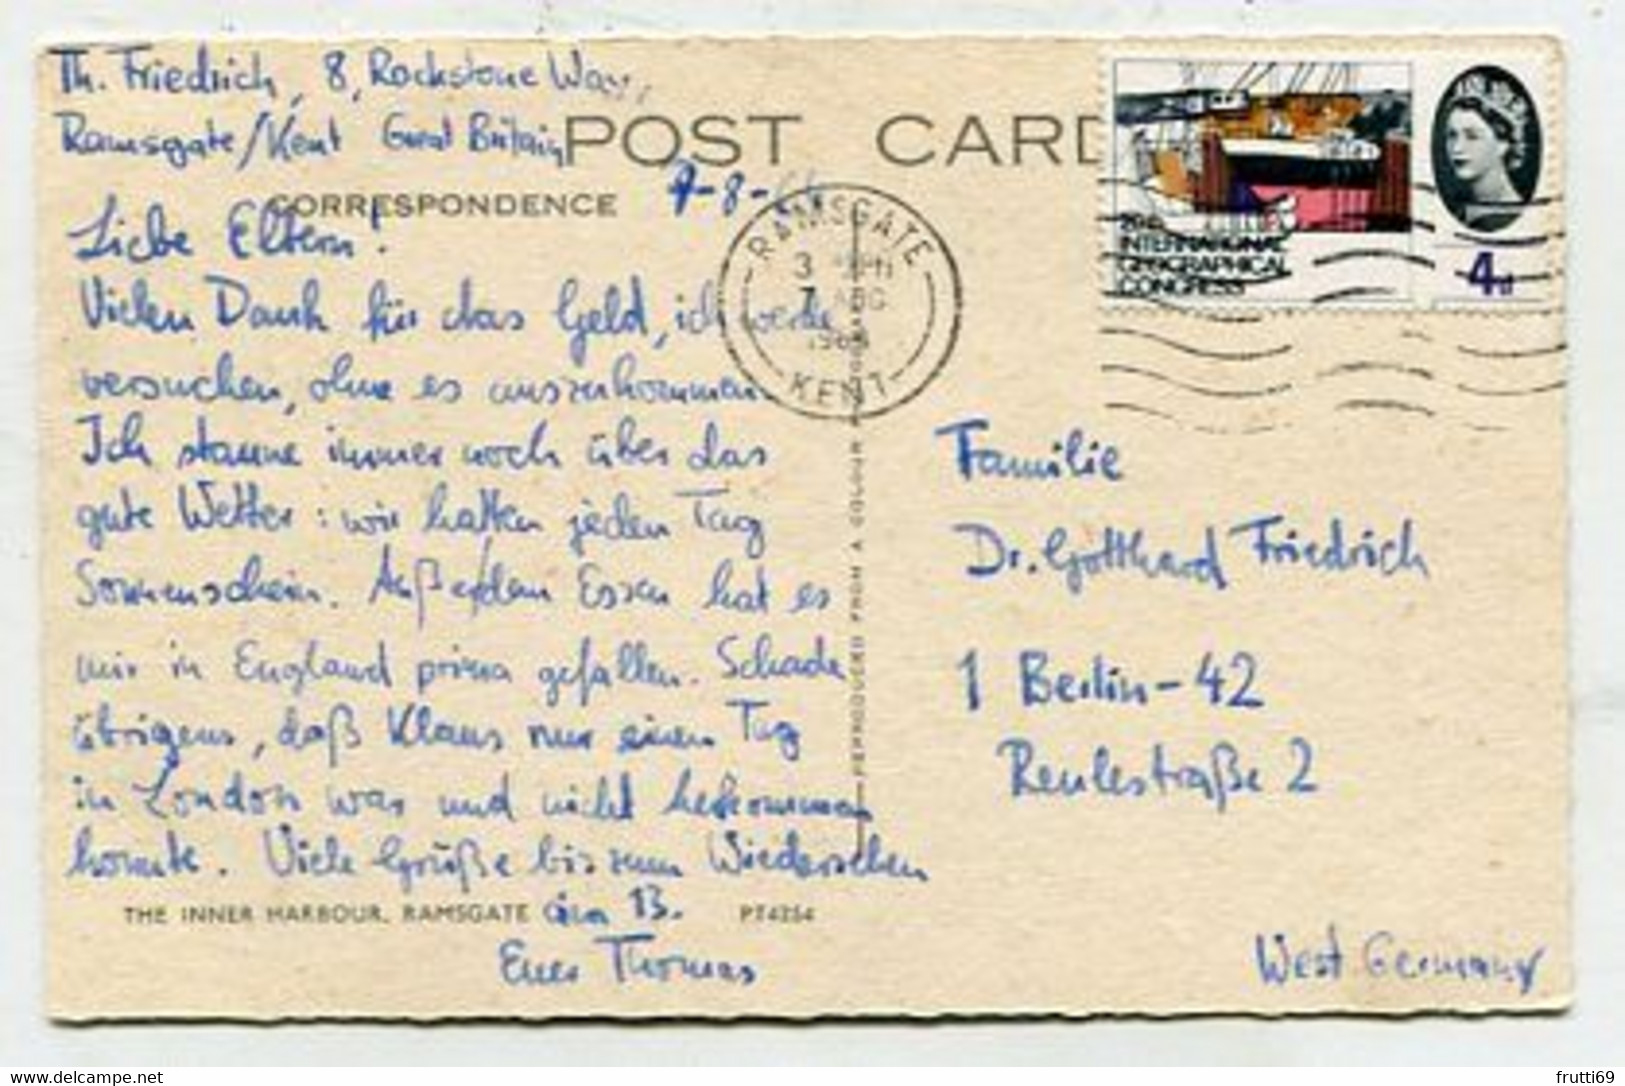 Th. Friedrich, 8, Rockstone Way,
Ramsgate/Kent Great Britain
POST CARD
7-8-
CORRESPONDENCE
Liebe Eltern!
Vielen Dank für das Geld, ich werde
versuchen, ohne es auszukommen.
Ich staune immer noch über das
gute Wetter: wir hatten jeden Tag
Sonnenschein. Außer dem Essen hat es
mir in England prima gefallen. Schade
übrigens, daß Klaus nur einen Tag
in London war und nicht herkommen
konnte. Viele Grüße bis zum Wiedersehen
am 13.
Euer Thomas
THE INNER HARBOUR, RAMSGATE
PT4254
REPRODUCED FROM A COLOUR
RAMSGATE
3
7 AUG
196
KENT
20th
INTERNATIONAL
GEOGRAPHICAL
CONGRESS
4d
Familie
Dr. Gotthard Friedrich
1 Berlin-42
Reulestraße 2
West Germany
frutti69